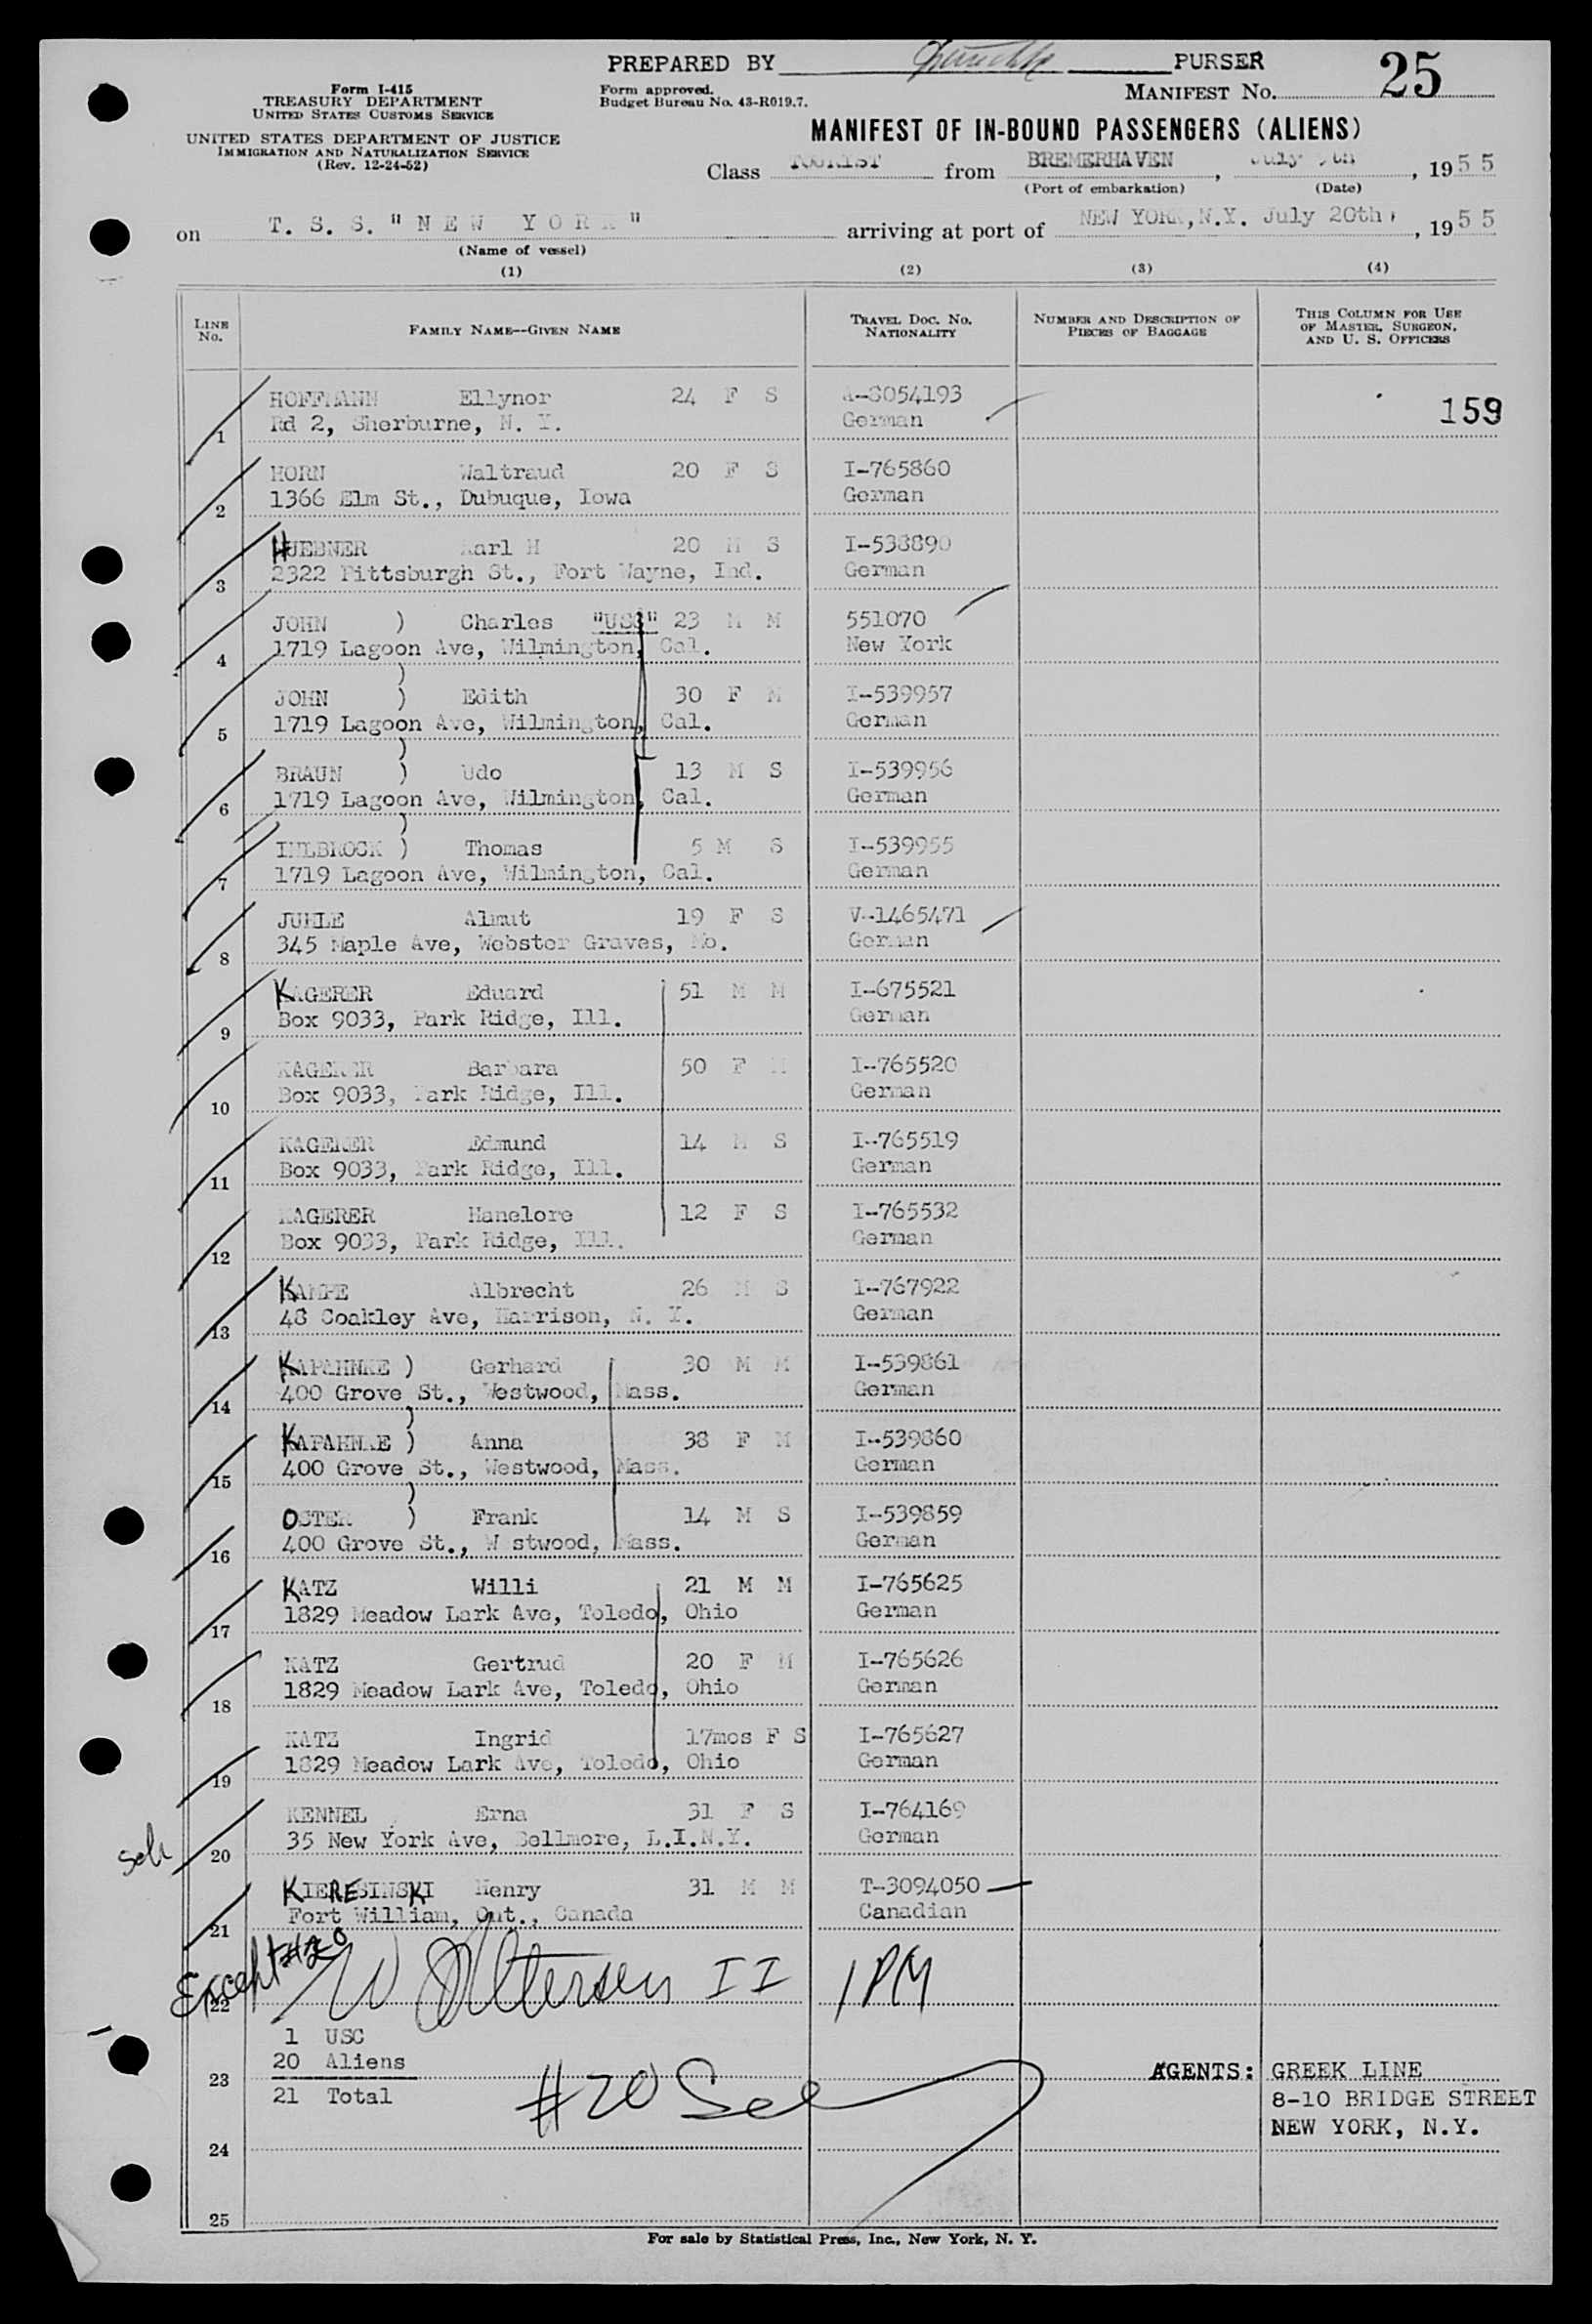 PREPARED BY PURSER
25
Form I-415
TREASURY DEPARTMENT
UNITED STATES CUSTOMS SERVICE
UNITED STATES DEPARTMENT OF JUSTICE
IMMIGRATION AND NATURALIZATION SERVICE
(Rev. 12-24-52)
Form approved.
Budget Bureau No. 43-R019.7.
MANIFEST NO.
MANIFEST OF IN-BOUND PASSENGERS (ALIENS)
Class TOURIST from BREMERHAVEN, July 9th, 1955
(Port of embarkation) (Date)
on T. S. S. "NEW YORK" arriving at port of NEW YORK, N.Y. July 20th, 1955
(Name of vessel)
(1) (2) (3) (4)
LINE No. FAMILY NAME--GIVEN NAME TRAVEL DOC. NO. NATIONALITY NUMBER AND DESCRIPTION OF PIECES OF BAGGAGE THIS COLUMN FOR USE OF MASTER, SURGEON, AND U. S. OFFICERS
HOFFMANN Ellynor 24 F S A-8054193
1 Rd 2, Sherburne, N. Y. German 159
HORN Waltraud 20 F S I-765860
2 1366 Elm St., Dubuque, Iowa German
HUEBNER Karl H 20 M S I-538890
3 2322 Pittsburgh St., Fort Wayne, Ind. German
JOHN ) Charles "USC" 23 M M 551070
4 1719 Lagoon Ave, Wilmington, Cal. New York
)
JOHN ) Edith 30 F M I-539957
5 1719 Lagoon Ave, Wilmington, Cal. German
)
BRAUN ) Udo 13 M S I-539956
6 1719 Lagoon Ave, Wilmington, Cal. German
)
IHLBROCK ) Thomas 5 M S I-539955
7 1719 Lagoon Ave, Wilmington, Cal. German
JUHLE Almut 19 F S V-1465471
8 345 Maple Ave, Webster Graves, Mo. German
KAGERER Eduard 51 M M I-675521
9 Box 9033, Park Ridge, Ill. German
KAGERER Barbara 50 F M I-765520
10 Box 9033, Park Ridge, Ill. German
KAGERER Edmund 14 M S I-765519
11 Box 9033, Park Ridge, Ill. German
KAGERER Hanelore 12 F S I-765532
12 Box 9033, Park Ridge, Ill. German
KAMPE Albrecht 26 M S I-767922
13 48 Coakley Ave, Harrison, N. Y. German
KAPAHNKE ) Gerhard 30 M M I-539861
14 400 Grove St., Westwood, Mass. German
)
KAPAHNKE ) Anna 38 F M I-539860
15 400 Grove St., Westwood, Mass. German
)
OSTER ) Frank 14 M S I-539859
16 400 Grove St., Westwood, Mass. German
KATZ Willi 21 M M I-765625
17 1829 Meadow Lark Ave, Toledo, Ohio German
KATZ Gertrud 20 F M I-765626
18 1829 Meadow Lark Ave, Toledo, Ohio German
KATZ Ingrid 17mos F S I-765627
19 1829 Meadow Lark Ave, Toledo, Ohio German
KENNEL Erna 31 F S I-764169
20 35 New York Ave, Bellmore, L.I.N.Y. German
KIERESINSKI Henry 31 M M T-3094050
21 Fort William, Ont., Canada Canadian
Except #20
II 1 PM
22
1 USC
20 Aliens
23 AGENTS: GREEK LINE
21 Total 8-10 BRIDGE STREET
#20 See
NEW YORK, N.Y.
24
25
For sale by Statistical Press, Inc., New York, N. Y.